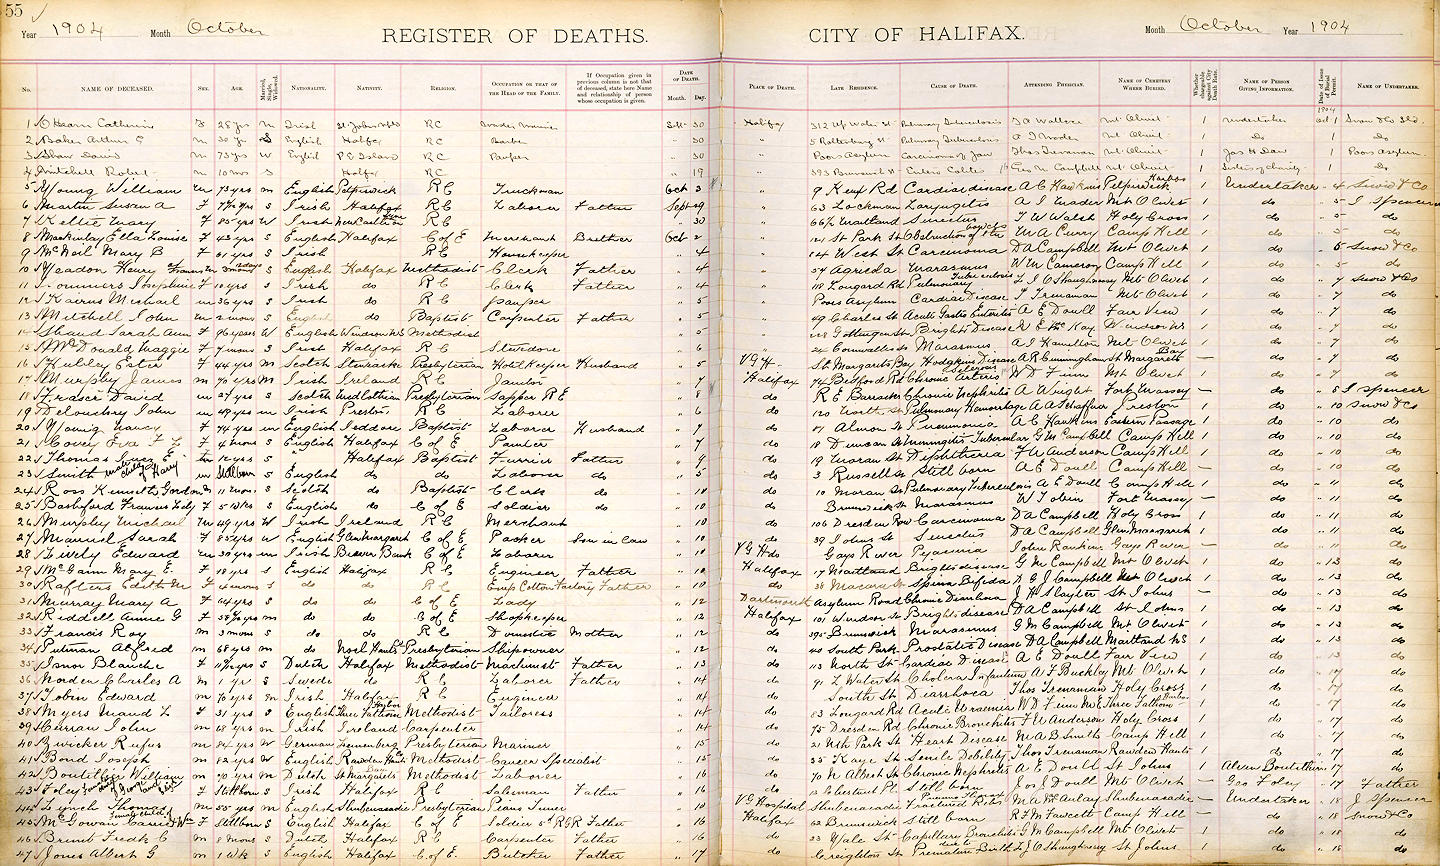 55
Year 1904 Month October REGISTER OF DEATHS. CITY OF HALIFAX. Month October Year 1904
No. NAME OF DECEASED. SEX. AGE. Married, Single, Widowed. NATIONALITY. NATIVITY. RELIGION. OCCUPATION OR THAT OF THE HEAD OF THE FAMILY. If Occupation given in previous column is not that of deceased, state here Name and relationship of person whose occupation is given. DATE OF DEATH. Month. Day. PLACE OF DEATH. LATE RESIDENCE. CAUSE OF DEATH. ATTENDING PHYSICIAN. NAME OF CEMETERY WHERE BURIED. Whether chargeable against City Death Rate. NAME OF PERSON GIVING INFORMATION. Date of Issue of Burial Permit. NAME OF UNDERTAKER.
1904
1 O'Hearn Catherine F 28 yrs m Irish St Johns Nfld RC Sept 30 Halifax 312 Up Water St Pulmonary Tuberculosis Wallace Mt Olivet 1 Undertaker Oct 1
2 Baker Arthur E m 30 yr S English Halifax RC Barber " 30 " 5 St Pulmonary Tuberculosis Mt Olivet 1 Do 1 Do
3 Shaw David m 73 yrs W English P E Island RC Pauper " 30 " Poors Asylum Carcinoma of Jaw Thos Trenaman Mt Olivet 1 1 Poors Asylum
4 Mitchell Robert m 10 mos S Halifax RC " 19 " 393 Brunswick St Colitis Geo M Campbell Mt Olivet 1 Sisters of Charity 1 Do
5 Young William m 73 yrs m English Petpeswick R C Truckman Oct 3 " 9 Rd Cardiac disease A C Hawkins Petpeswick Harbor 1 Undertaker 4 Snow & Co
6 Martin Susan A F S Irish Halifax R C Laborer Father Sept 29 " 63 Lockman Laryngitis A I Mader Mt Olivet 1 do " 5 I Spencer
7 Kellie Mary F 85 yrs W Irish R C " 30 " 66½ Maitland Senectus T W Walsh Holy Cross 1 do " 5 do
8 Mackinlay Ella Louise F 43 yrs S English Halifax C of E Merchant Brother Oct 2 " 121 St Park St Obstruction of the bowels M A Curry Camp Hill 1 do " 5 do
9 McNeil Mary B F 61 yrs S Irish R C Housekeeper " 4 " 14 West St Carcinoma D A Campbell Mt Olivet 1 do 5 Snow & Co
10 Yeadon Henry m S English Halifax Methodist Clerk Father " 4 " 54 Agricola Marasmus W M Cameron Camp Hill 1 do " 5 do
11 Josephine F 10 yrs Irish do R C Clerk Father " 4 " 118 Longard Rd Pulmonary Tuberculosis Mt Olivet 1 do " 7 Snow & Co
12 Kairns Michael m 36 yrs S Irish do R C pauper " 5 " Poors Asylum Cardiac Disease T Trenaman Mt Olivet 1 do " 7 do
13 Mitchell John m 2 mons S English do Baptist Carpenter Father " 5 " 49 Charles St Acute Gastro Enteritis A E Doull Fair View 1 do " 7 do
14 Shand Sarah Ann F 96 years W English Windsor NS Methodist " 5 " 228 Gottingen St Brights Disease McKay Windsor NS 1 do " 7 do
15 McDonald Maggie F 7 mons S Irish Halifax R C Stevedore " 6 " 24 Cornwallis St Marasmus A I Hamilton Mt Olivet 1 do " 7 do
16 Hubley Ester F 44 yrs m Scotch Presbyterian Hotel Keeper Husband " 5 V G H St Margarets Bay Hodgkins Disease A R Cunningham St Margarets Bay — do " 7 do
17 Murphy James m 70 yrs m Irish Ireland R C Janitor " 7 Halifax 74 Bedford Rd Chronic W D Finn Mt Olivet 1 do " 7 do
18 Fraser David m 27 yrs S Scotch Midlothian Presbyterian Sapper R E " 8 do R E Barracks Chronic Nephritis A Wright Fort Massey — do " 5 I Spencer
19 Delouchry John m 49 yrs m Irish Preston R C Laborer " 6 do 120 North St Pulmonary Hemorrhage A A Schaffner Preston 1 do " 10 Snow & Co
20 Young Nancy F 74 yrs m English Baptist Laborer Husband " 7 do 07 Almon St Pneumonia A C Hawkins Eastern Passage 1 do " 10 do
21 Covey Eva F 4 mons S English Halifax C of E Painter " 7 do 18 Duncan St Meningitis Tubercular G M Campbell Camp Hill 1 do " 10 do
22 Thomas E m 12 yrs S " Halifax Baptist Furrier Father " 9 do 19 Moran St Diphtheria F U Anderson Camp Hill 1 do " 11 do
23 Smith male child of Harry m Stillborn S English do do Laborer do " 5 do 3 Russell St Still born A E Doull Camp Hill — do " 11 do
24 Ross Kenneth Gordon m 11 mons S Scotch do Baptist Clerk do " 10 do 10 Moran St Pulmonary Tuberculosis A E Doull Camp Hill 1 do " 11 do
25 Bashford Francis F 5 wks S English do C of E Soldier do " 10 do Brunswick St Marasmus W Tobin Fort Massey — do " 11 do
26 Murphy Michael m 49 yrs W Irish Ireland R C Merchant " 10 do 106 Dresden Row Carcinoma D A Campbell Holy Cross 1 do " 11 do
27 Manuel Sarah F 85 yrs W English Glen Margaret C of E Packer Son in law " 10 do 39 Johns St Senectus D A Campbell Glen Margaret 1 do " 11 do
28 Lively Edward m 30 yrs m Irish Beaver Bank C of E Laborer " 10 V G H Gays River Pyaemia John Rankine Gays River — do " 11 do
29 McGann Mary E. F 18 yrs S English Halifax R C Engineer Father " 10 Halifax 17 Maitland Brights disease G M Campbell Mt Olivet 1 do " 13 do
30 Rafters Edith M F mons S do do R C Emp Cotton Factory Father " 10 do 38 Macara St Spina Bifida D G J Campbell Mt Olivet 1 do " 13 do
31 Murray Mary A F 64 yrs S do do C of E Lady " 12 Dartmouth Asylum Road Chronic Diarrhoea J H Slayter St Johns 1 do " 13 do
32 Riddell Annie G F S do do C of E Shopkeeper " 12 Halifax 101 Windsor St Brights disease D A Campbell St Johns 1 do " 13 do
33 Francis Roy m 3 mons S do do R C Domestic Mother " 12 do 395 Brunswick Marasmus G M Campbell Mt Olivet 1 do " 13 do
34 Putman Alfred m 68 yrs m do Noel Hants Co Presbyterian Shipowner " 12 do 40 South Park Prostatic Disease D A Campbell Maitland NS 1 do " 13 do
35 Isnor Blanche F S Dutch Halifax Methodist Machinist Father " 13 do 113 North St Cardiac Disease A E Doull Fair View 1 do " 13 do
36 Norden Charles A m 1 yr S Swede do R C Laborer Father " 14 do 91 L Water St Cholera Infantum A F Buckley Mt Olivet 1 do " 17 do
37 Tobin Edward m 70 yrs m Irish Halifax R C Engineer " 14 do South St Diarrhoea Thos Trenaman Holy Cross 1 do " 17 do
38 Myers Maud L F 31 yrs S English Three Fathom Harbor Methodist Tailoress " 14 do 83 Longard Rd Acute Uraemia W D Finn Three Fathom Harbor 1 do " 17 do
39 Curran John m 68 yrs m Irish Ireland Carpenter " 14 do 75 Dresden Rd Chronic Bronchitis F U Anderson Holy Cross 1 do " 17 do
40 Zwicker Rufus m 84 yrs W German Lunenburg Presbyterian Mariner " 15 do 21 Nth Park St Heart Disease M A B Smith Camp Hill 1 do " 17 do
41 Bond Joseph m 82 yrs W English Rawdon Hants Methodist Cancer Specialist " 15 do 55 Kaye St Senile Debility Thos Trenaman Rawdon Hants 1 do " 17 do
42 Boutilier William m 70 yrs m Dutch St Margarets Bay Methodist Laborer " 16 do 70 N Albert St Chronic Nephritis A E Doull St Johns 1 Boutilier " 17 do
43 Foley female child of George and F Stillborn S Irish Halifax R C Salesman Father " 16 do Chestnut Pl Still born Jos J Doull Mt Olivet — Geo Foley " 17 Father
44 Lynch Thomas m 55 yrs m English Shubenacadie Presbyterian Piano Tuner " 10 V G Hospital Shubenacadie Fractured Ribs M A McAulay Shubenacadie — Undertaker " 18 J Spencer
45 McGowan female child of F Stillborn S English Halifax C of E Soldier Father " 16 Halifax 62 Brunswick Still born R F McFawcett Camp Hill — do " 18 Snow & Co
46 Fredk C m 8 mons S Dutch Halifax R C Carpenter Father " 16 do 23 Yale St Capillary Bronchitis G M Campbell Mt Olivet 1 do " 18 do
47 Jones Albert G m 1 wk S English Halifax C of E. Butcher Father " 17 do Creighton St Premature Birth St Johns 1 do " 18 do